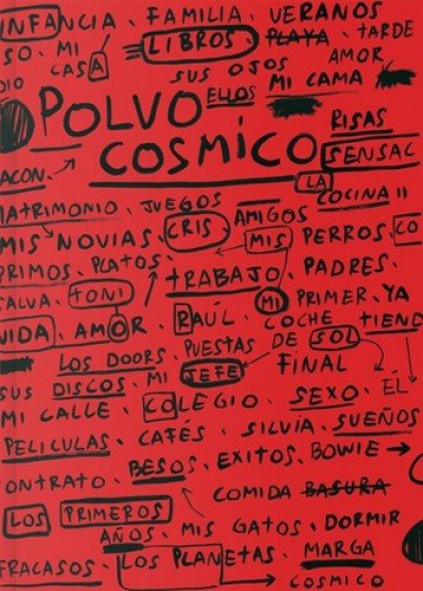 INFANCIA, FAMILIA, VERANOS
SO, MI LIBROS, PLAYA, TARDE
CASA SUS OJOS AMOR
DIO ELLOS MI CAMA
POLVO RISAS
COSMíCO SENSAC
ACON. LA COCINA II
MATRIMONIO, JUEGOS AMIGOS
MIS NOVIAS, CRIS, MIS PERROS, CO
PRIMOS, PLATOS, TRABAJO, PADRES.
SALVA, TONI MI PRIMER, YA
VIDA, AMOR, RAÚL, COCHE TIEND
LOS DOORS, PUESTAS DE SOL
SUS DISCOS, MI JEFE, FINAL
MI CALLE, COLEGIO, SEXO, ÉL
PELICULAS, CAFÉS, SILVIA, SUEÑOS
BESOS, EXITOS, BOWIE
ONTRATO, COMIDA BASURA
LOS PRIMEROS
AÑOS, MIS GATOS, DORMIR
FRACASOS, LOS PLANETAS, MARGA
COSMICO